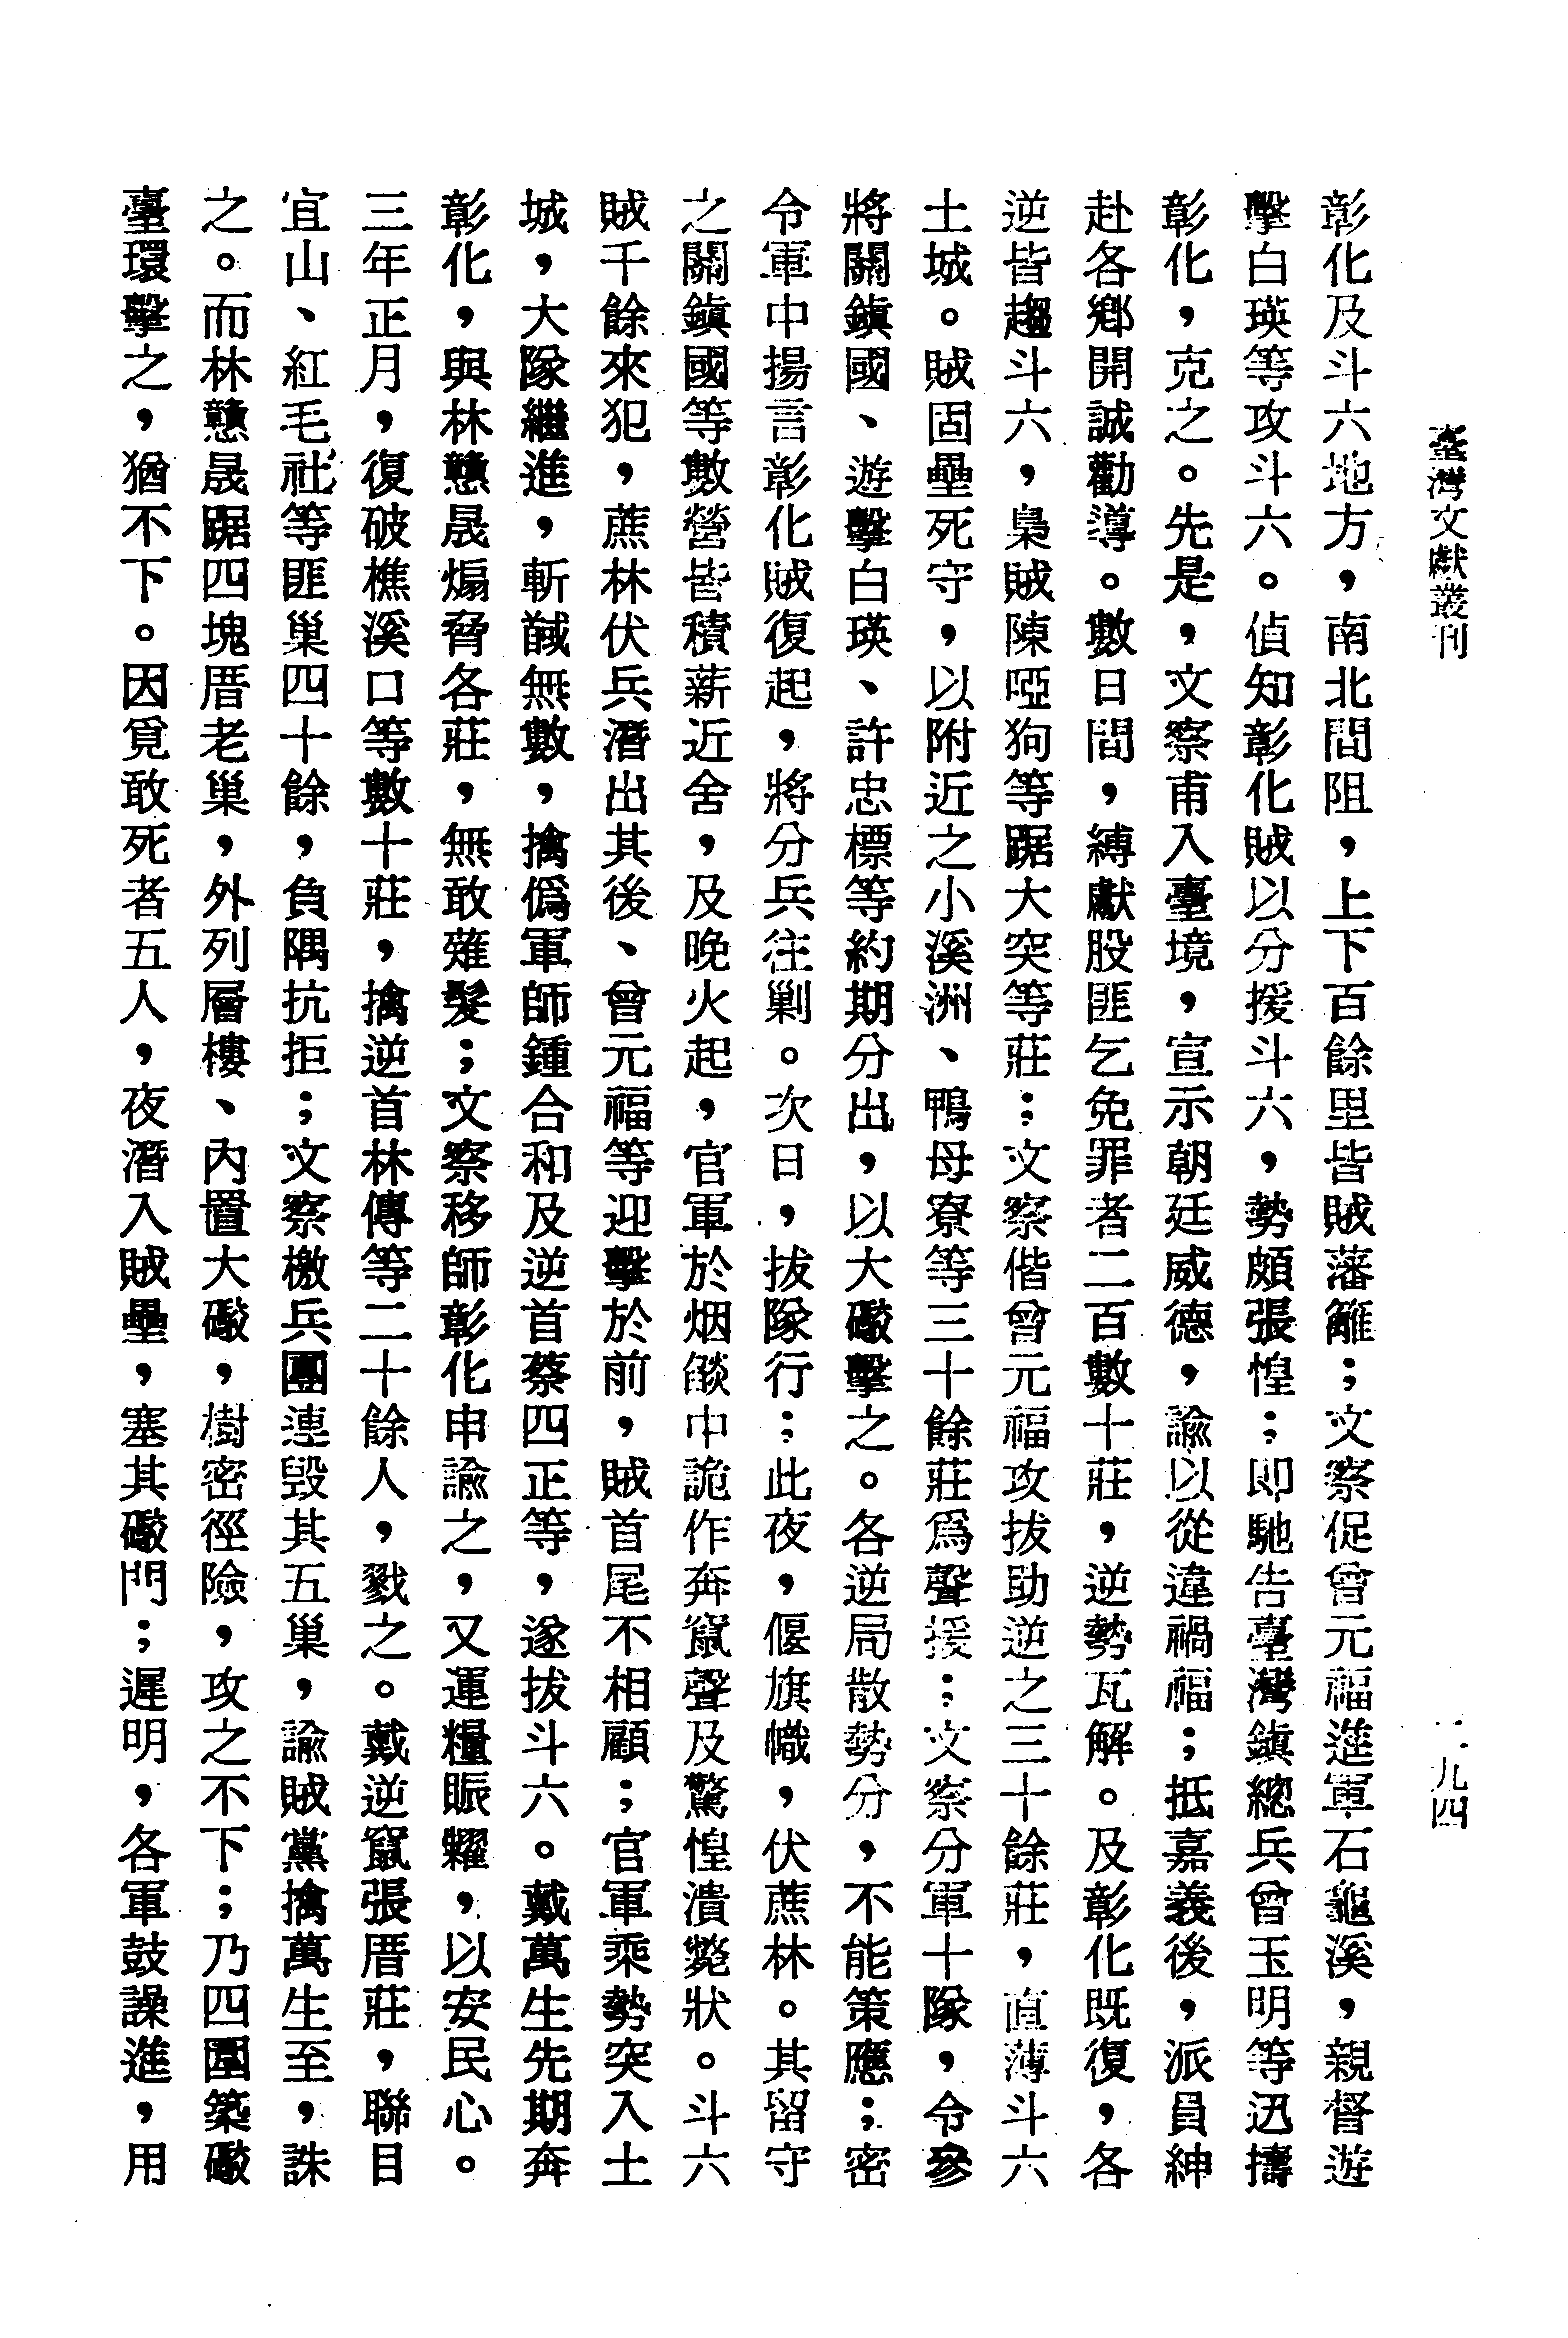 臺灣文獻叢刊
一九四
彰化及斗六地方，南北間阻，上下百餘里皆賊藩籬；文察促曾元福進軍石龜溪，親督遊
擊白瑛等攻斗六。偵知彰化賊以分援斗六，勢頗張惶；即馳告臺灣鎮總兵曾玉明等迅擣
彰化，克之。先是，文察甫入臺境，宣示朝廷威德，諭以從違禍福；抵嘉義後，派員紳
赴各鄉開誠勸導。數日間，縛獻股匪乞免罪者二百數十莊，逆勢瓦解。及彰化既復，各
逆皆趨斗六，梟賊陳啞狗等踞大突等莊；文察偕曾元福攻拔助逆之三十餘莊，直薄斗六
土城。賊固壘死守，以附近之小溪洲、鴨母寮等三十餘莊爲聲援；文察分軍十隊，令參
將關鎮國、遊擊白瑛、許忠標等約期分出，以大礮擊之。各逆局散勢分，不能策應；密
令軍中揚言彰化賊復起，將分兵往剿。次日，拔隊行；此夜，偃旗幟，伏蔗林。其留守
之關鎮國等數營皆積薪近舍，及晚火起，官軍於烟燄中詭作奔竄聲及驚惶潰斃狀。斗六
賊千餘來犯，蔗林伏兵潛出其後、曾元福等迎擊於前，賊首尾不相顧；官軍乘勢突入土
城，大隊繼進，斬馘無數，擒僞軍師鍾合和及逆首蔡四正等，遂拔斗六。戴萬生先期奔
彰化，與林戇晟煽脅各莊，無敢薙髮；文察移師彰化申諭之，又運糧賑糶，以安民心。
三年正月，復破樵溪口等數十莊，擒逆首林傳等二十餘人，戮之。戴逆竄張厝莊，聯目
宜山、紅毛社等匪巢四十餘，負隅抗拒；文察檄兵團連毀其五巢，諭賊黨擒萬生至，誅
之。而林戇晟踞四塊厝老巢，外列層樓、內置大礮，樹密徑險，攻之不下；乃四圍築礮
臺環擊之，猶不下。因覓敢死者五人，夜潛入賊壘，塞其礮門；遲明，各軍鼓譟進，用